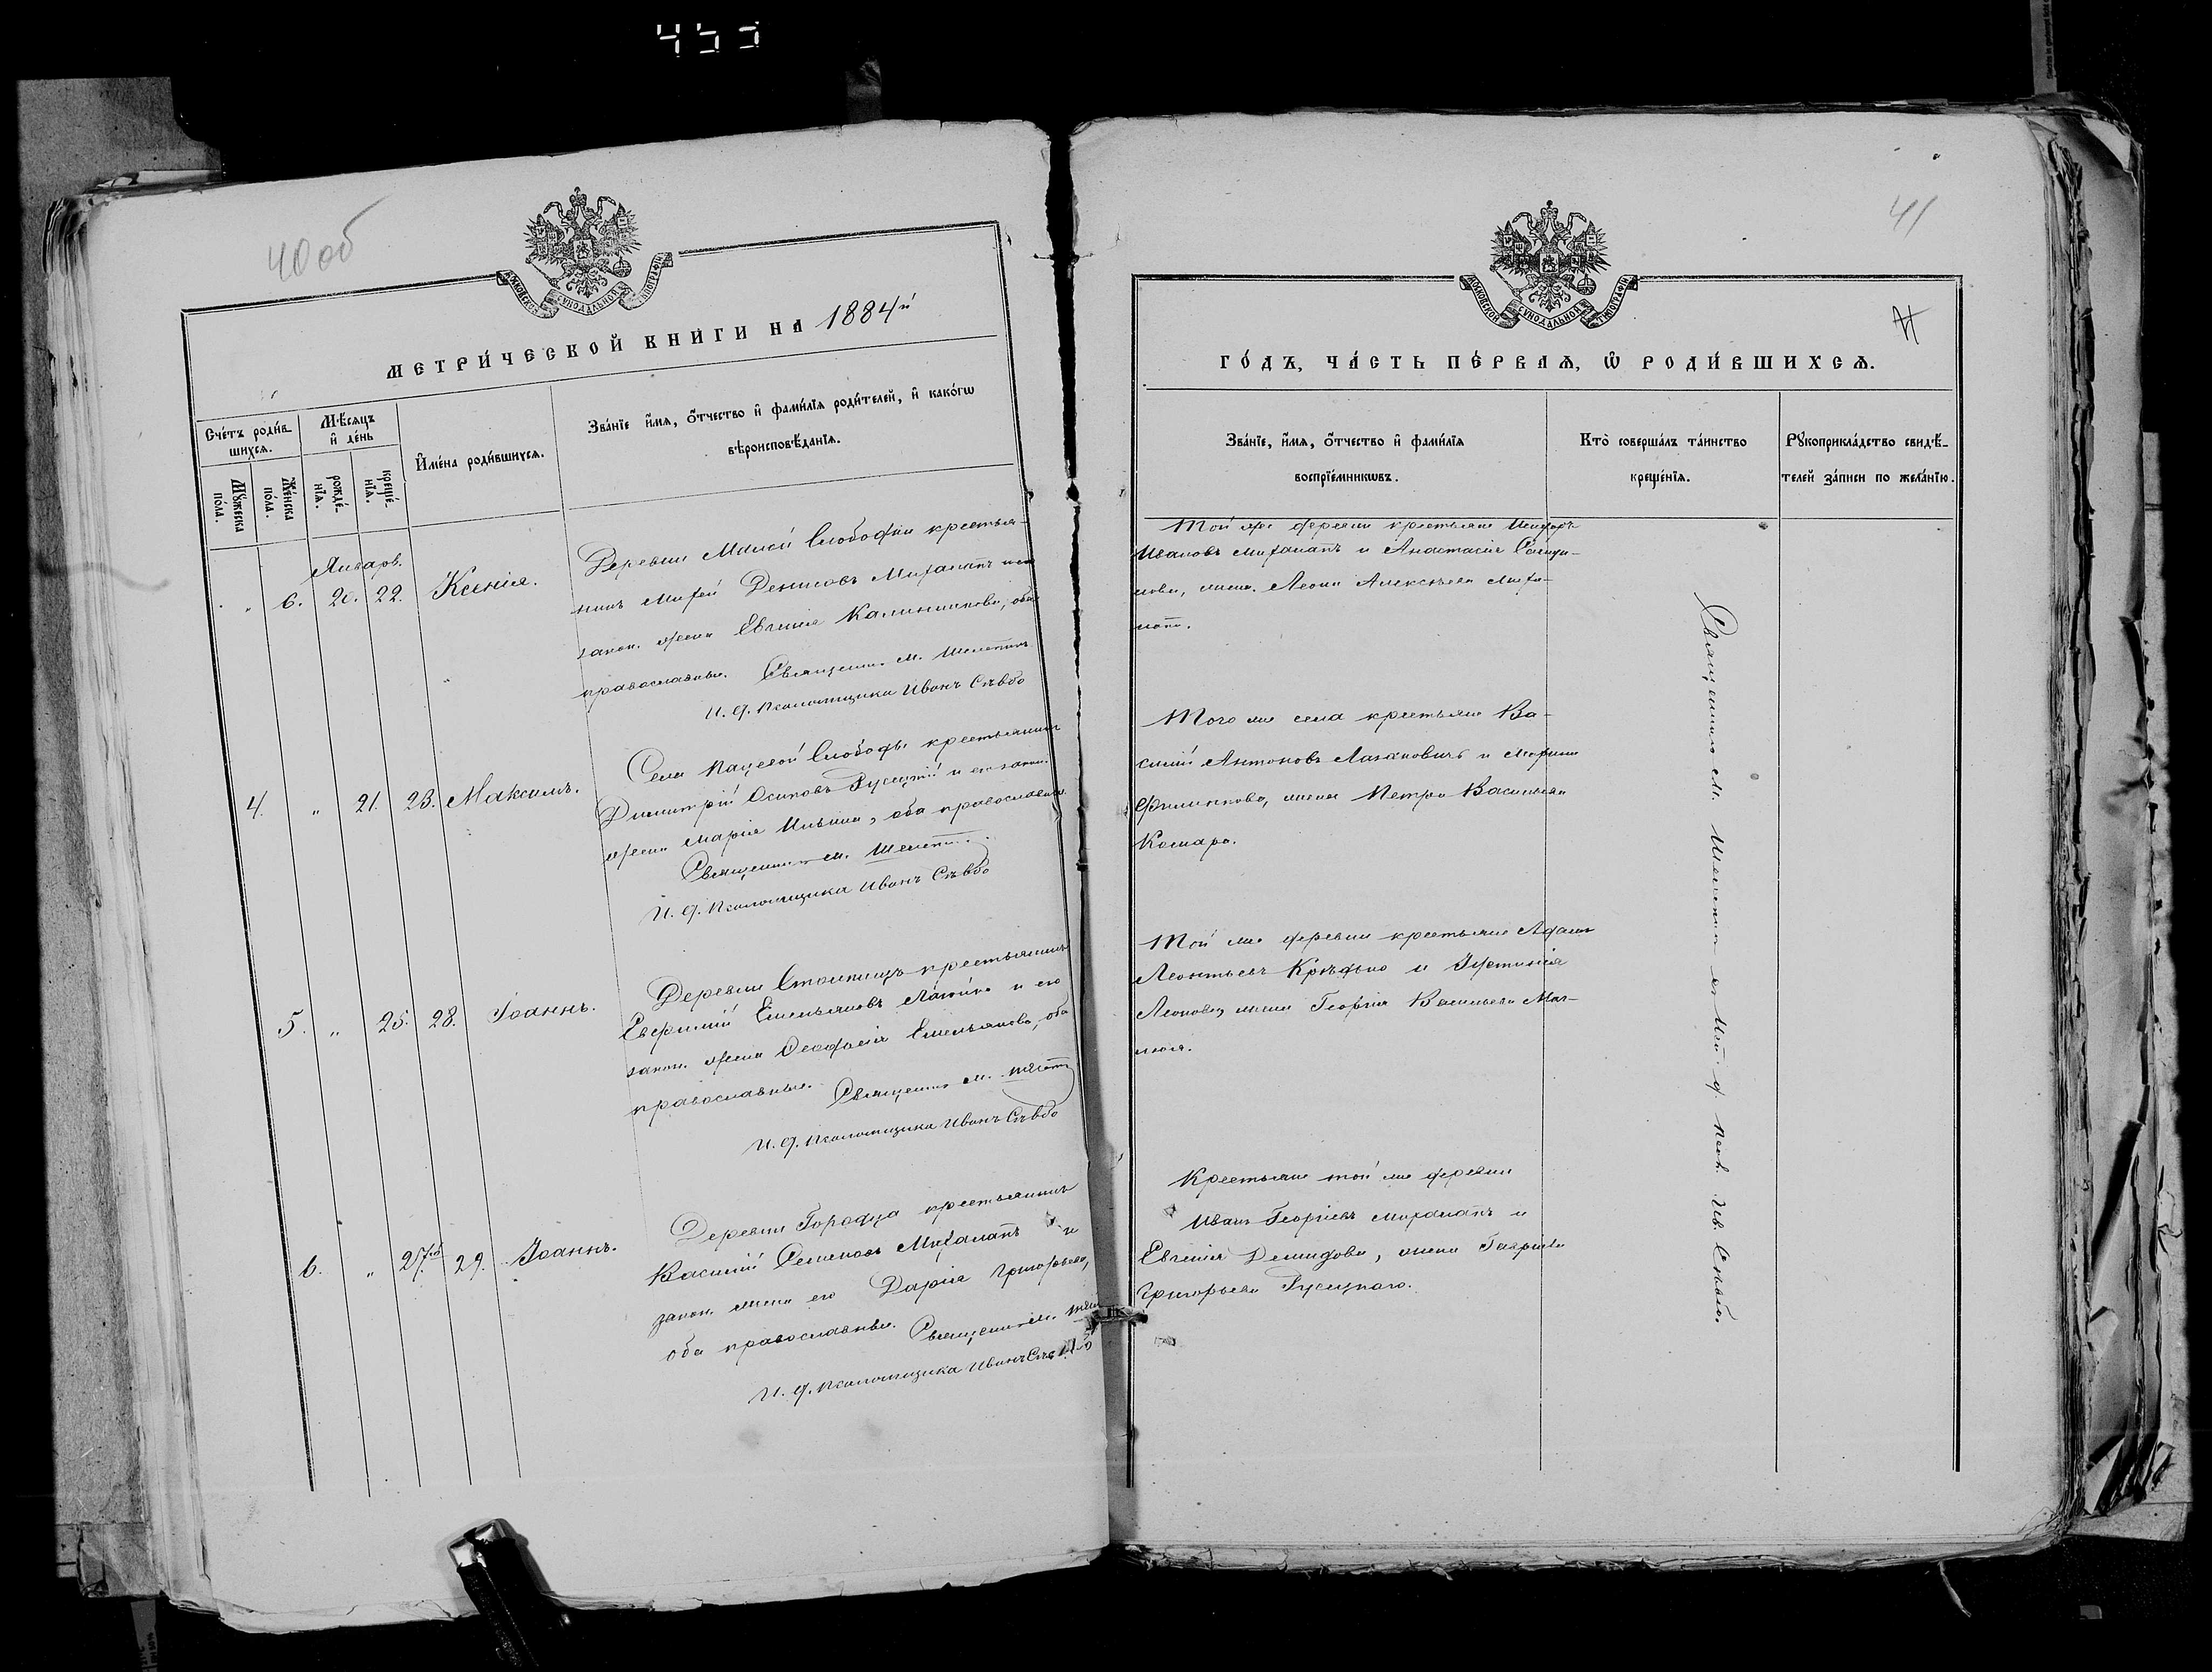 40 об
МОСКОВСКОЙ СУНОДАЛЬНОЙ ТИПОГРАФІИ
МЕТРИ́ЧЕСКОЙ КНИ́ГИ НА 1884й
Сче́тъ роди́в-
шихся.
Мꙋ́жеска
по́ла.
Же́нска
по́ла.
Мѣ́сяцъ
и҆ де́нь
рожде́-
нїѧ.
креще́-
нїѧ.
И҆мена̀ роди́вшихсѧ.
Зва́нїе и҆́мѧ, ѻ҆́тчество и҆ фами́лїѧ роди́телей, и҆ како́гѡ
вѣроисповѣ́данїѧ.
Январ.
„ 6. 20. 22. Ксенія.
Деревни Малой Слободки крестья-
нинъ Михей Денисовъ Михалапъ и его
закон. жена Евгенія Калинникова, оба
православные. Священник М.
И. д. псаломщика Иванъ Сѣвбо
4. „ 21. 23. Максимъ.
Села Пацевой Слободы крестьянинъ
Димитрій Осиповъ Русецкій и его закон.
жена Марія Ильина, оба православные
Священник М.
И. д. псаломщика Иванъ Сѣвбо
5. „ 25. 28. Іоаннъ.
Деревни Столпищъ крестьянинъ
Евфимій Емельяновъ и его
закон. жена Феодосія Емельянова, оба
православные. Священник М.
И. д. псаломщика Иванъ Сѣвбо
6. „ 27го 29. Іоаннъ.
Деревни Городца крестьянинъ
Василій Семеновъ Михалапъ и
закон. жена его Дарія Григорьева,
оба православные. Священник М.
И. д. псаломщика Иванъ
41
МОСКОВСКОЙ СУНОДАЛЬНОЙ ТИПОГРАФІИ
ГО́ДЪ, ЧА́СТЬ ПЕ́РВАѦ, Ѡ҆ РОДИ́ВШИХСѦ.
Зва́нїе, и҆́мѧ, ѻ҆́тчество и҆ фами́лїѧ
воспрїе́мникѡвъ.
Кто̀ соверша́лъ та́инство
креще́нїѧ.
Рꙋкоприкла́дство свидѣ́-
телей за́писи по жела́нїю.
Той же деревни крестьяне
Ивановъ Михалапъ и Анастасія
жена Леона Алексѣева Миха-
лапа.
Того же села крестьяне Ва-
силій Антоновъ Лазаковичъ и Марина
Филиппова, жена Петра Васильева
Комара.
Той же деревни крестьяне Адамъ
Леонтьевъ и Іустинія
Леонова, жена Георгія Васильева
Крестьяне той же деревни
Иванъ Георгіевъ Михалапъ и
Евгенія Демидова, жена Гавріила
Григорьева Русецкаго.
Священникъ М. съ И. д. псал. Ив. Сѣвбо.